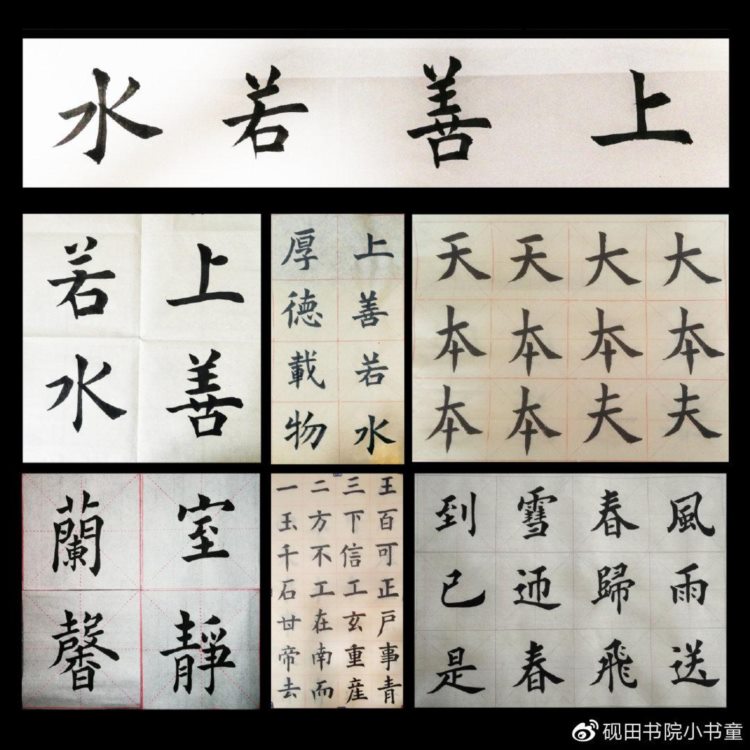 上善若水
上善
若水
上善若水
厚德載物
大本夫
大本夫
天本本
天本本
室靜
蘭馨
王百可正戶事青
三下信工玄重産
二方不工在南而
一玉千石甘帝去
風雨送
春歸飛
雪迎春
到已是
砚田书院小书童